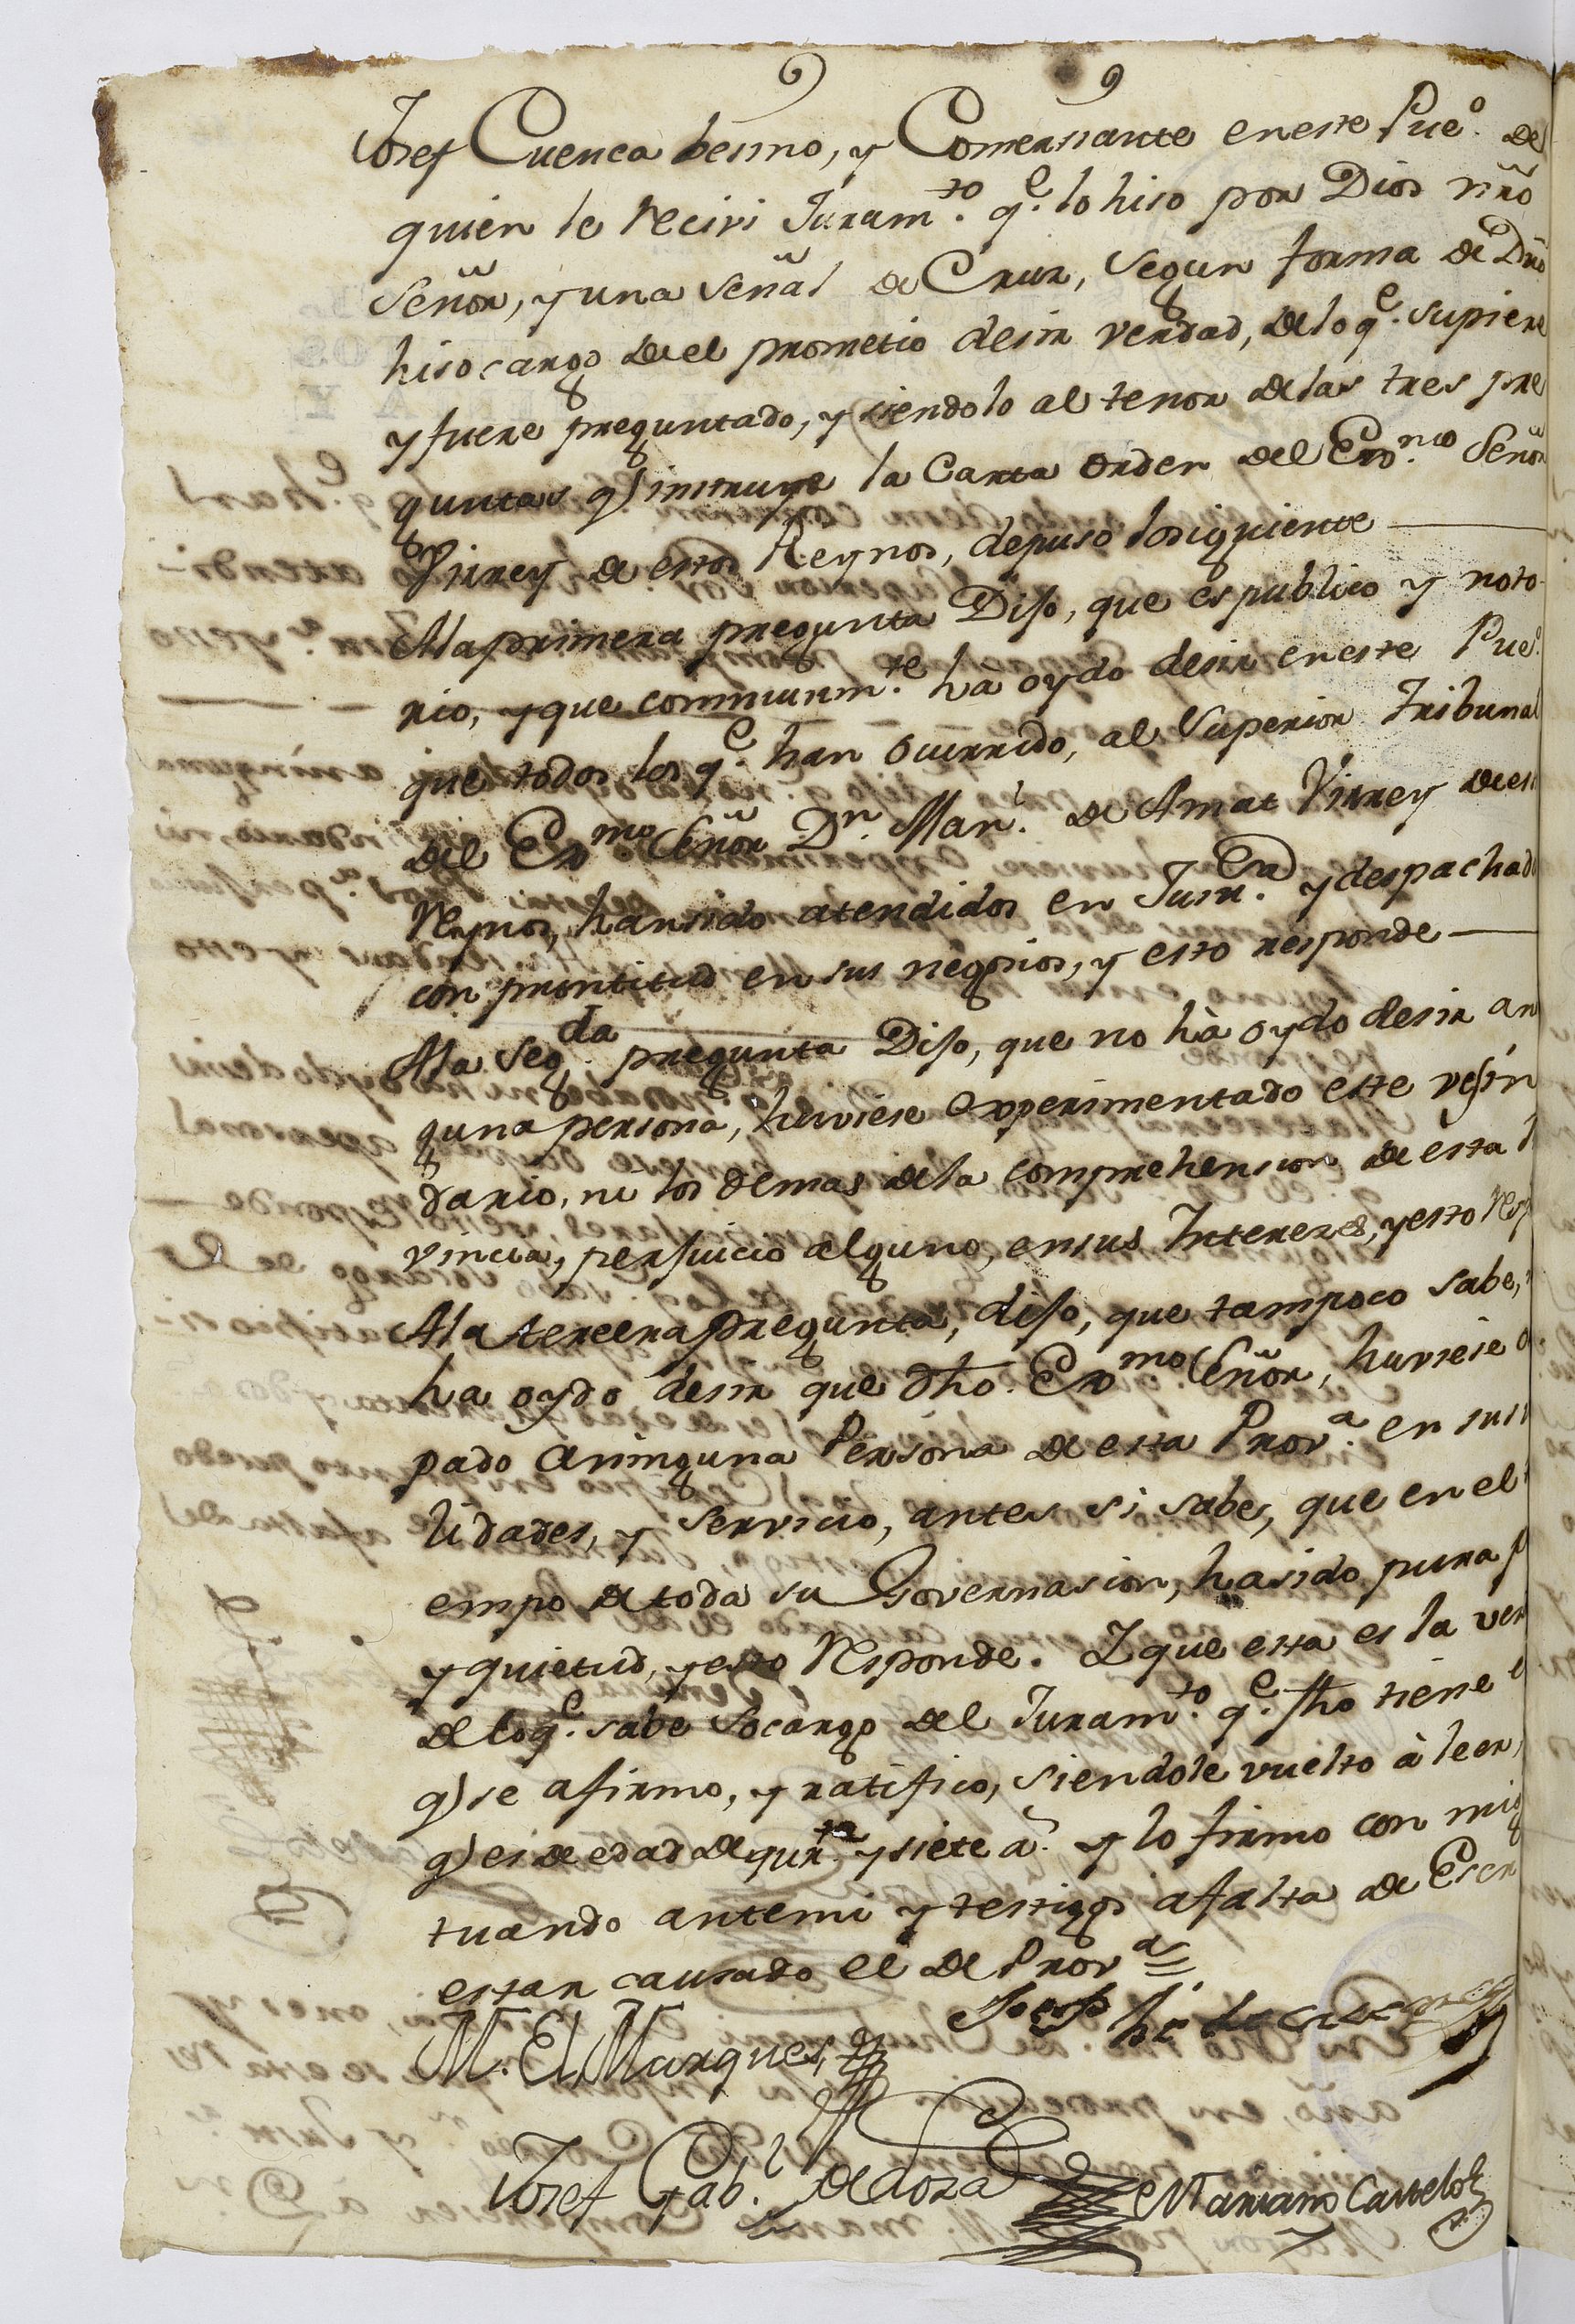 Josef Cuenca besino, y Comersiante en este Pueº. de
quien le recivi Juramto. qe. lo hiso por Dios nro
Señor, y una Señal de Crux, segun forma de Dro
hiso cargo de el prometio desir verdad, de lo qe. supiere
y fuere preguntado, y siendolo al tenor de las tres pre
guntas q) instruye la Carta orden del Exmo. Señor
Virrey de estos Reynos, depuso lo siguiente
A la primera pregunta Dijo, que es publico y noto-
rio, y que communmte. hà oydo desir en este Pueº.
que todos los qe. han ocurrido, al Superior Tribunal
del Exmo Señor Dn. Manl. de Amat Virrey de es
Reynos, han sido atendidos en Justa. y despachad
con prontitud en sus negosios, y esto responde
A la segda. pregunta Dijo, que no hà oydo desir a nin
guna persona, huviese experimentado este vesin
dario, ni los demas de la comprehension de esta
vincia, perjuicio alguno, en sus Intereses, y esto resp
A la tercera pregunta, dijo, que tampoco sabe,
ha oydo desir que dho. Exmo Señor, huviese
pado a ninguna Persona de esta Prova. en sus
lidades, y servicio, antes si sabe, que en el
empo de toda su Governasion, ha sido pura p
y quietud, y esto responde. Y que esta es la ver
de lo qe. sabe socargo del Juramto. qe. fho tiene
q) se afirmo, y ratifico, siendole vuelto à leer,
q) es de edad de quarta. y siete as. y lo firmo con mig
tuando antemi y testigos a falta de Escr
estar causado el de Prova.
M. El Marques
Josef Gabl. de Loza
Mariano Castelo